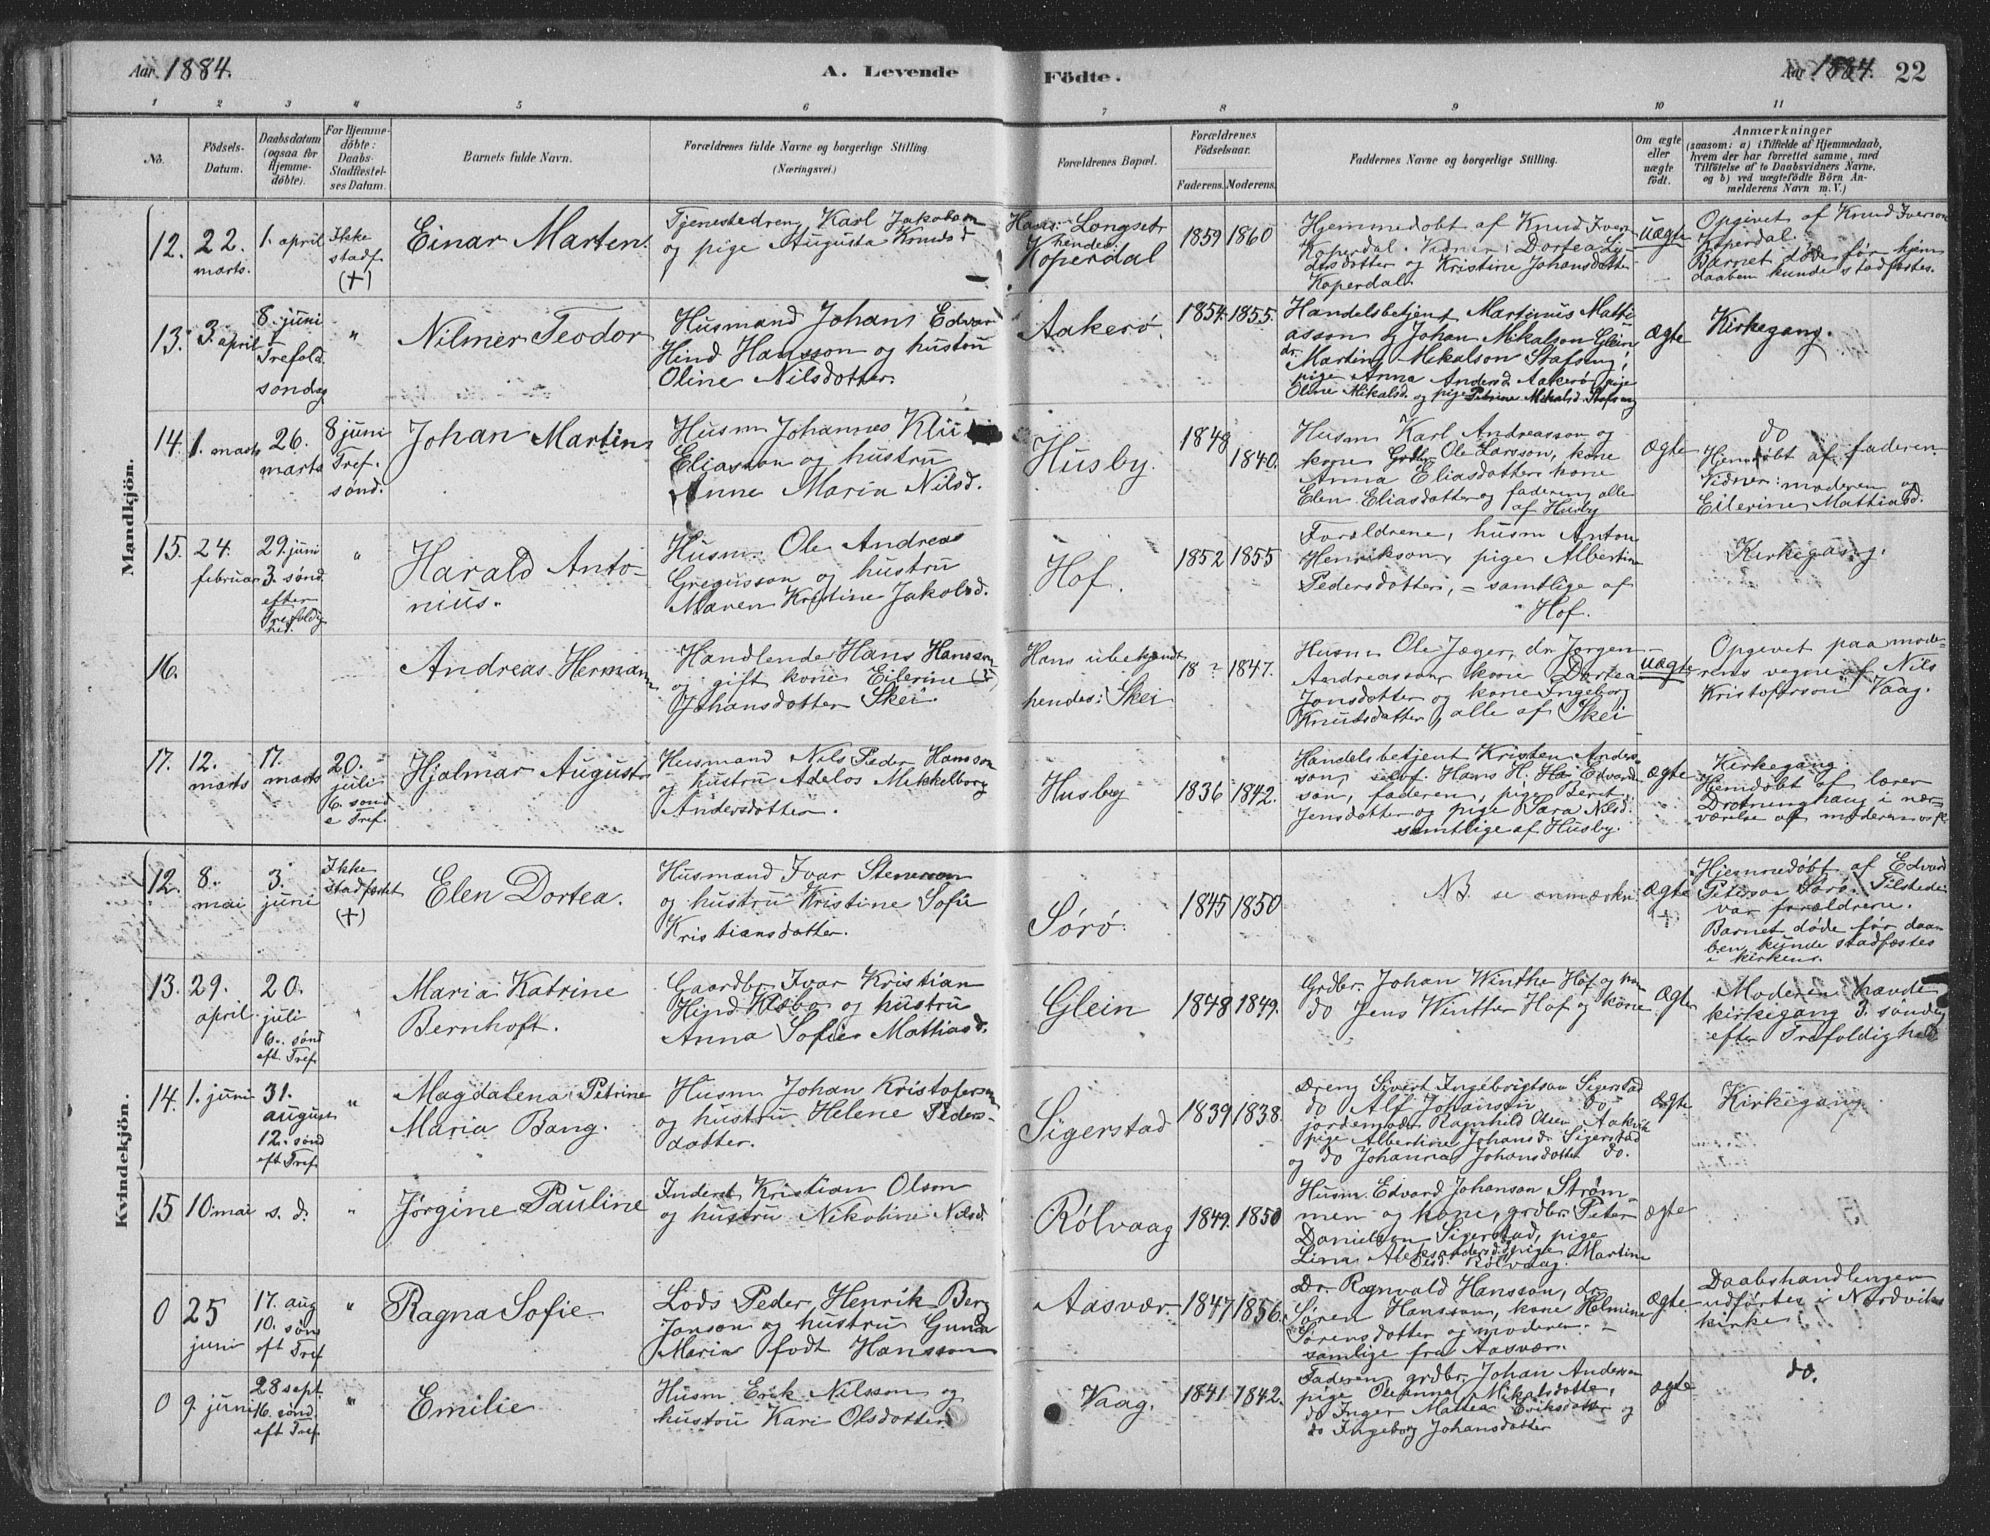 Aar 1884.
A. Levende
Födte.
Aar 1884.
22
1 2 3 4 5 6 7 8 9 10 11
No.
Födsels-
Datum.
Daabsdatum
(ogsaa for
Hjemme-
döbte).
For Hjemme-
döbte:
Daabs-
Stadfæstel-
ses Datum.
Barnets fulde Navn.
Forældrenes fulde Navne og borgerlige Stilling
(Næringsvei.)
Forældrenes Bopæl.
Forældrenes
Födselsaar.
Faderens. Moderens.
Faddernes Navne og borgerlige Stilling.
Om ægte
eller
uægte
födt.
Anmærkninger
(saasom: a) i Tilfælde af Hjemmedaab,
hvem der har forrettet samme, med
Tilföielse af to Daabsvidners Navne.
og b) ved uægtefödte Börn An-
melderens Navn m. V.)
Mandkjön.
12.
22.
marts.
1. april
Ikke
stadf.
(+)
Einar Marten.
Tjenestedreng Karl Jakobson
og pige Augusta Knudsd
Hans: Longset
hendes:
Koperdal
1859
1860
Hjemmedobt af Knud Ivers
Koperdal. Vidner: Dortea
dersdotter og Kristine Johansdotter
Koperdal
Uægte
Opgivet af Knud Iverson
Koperdal.
Barnet døde før hjem
daaben kunde stadfæstes.
13.
3. april
8. juni
Trefold.
søndag
"
Nilmer Teodor
Husmand Johans Edvar
Hind Hansson og hustru
Oline Nilsdotter.
Aakerø.
1854.
1855.
Handelsbetjent Martinus Matti
asson og Johan Mikalson Glein
dr. Marting Mikalson Stafseng,
pige Anna Andersd. Aakerø, pige
Oline Mikalsd. og pige Petrine Mikalsd. Stafseng
Ægte
Kirkegang.
14.
1. marts
26.
marts
8 juni
Tref.
sønd.
Johan Martin
Husm Johannes
Eliasson og hustru
Anne Maria Nilsd.
Husby.
1848
1840.
Husm Karl Andreasson og
kone Ole Larsson, kone
Anna Eliasdotter, kone
Elen Eliasdotter og faderen, alle
af Husby
Ægte
do
Hjemdøbt af faderen
Vidner: moderen og
Eilerine Mattiasd.
15.
24.
februar
29. juni
3. sønd.
efter
Trefoldig
het.
"
Harald Anto-
nius.
Husm. Ole Andreas
Gregusson og hustru
Maren Kristine Jakobsd.
Hof.
1852
1855
Foraldrene, husm Anton
Henrikson, pige Albertine
Pedersdotter, – samtlige af
Hof.
Kirkegang.
16.
Andreas Herman
Handlende Hans Hansson
og gift kone Eilerine
Johansdotter Skei
Hans ubekjendt
hendes: Skei
18 ?
1847.
Husm Ole Jæger, dr. Jørgen
Andreasson, kone Dortea
Jonsdotter og kone Ingeborg
Knutsdatter, alle af Skei
Uægte
Opgivet paa mode-
rens vegne af Nils
Kristoferson Vaag.
17.
12.
marts
17.
marts
20.
juli
6. sønd
e Tref.
Hjalmar August
Husmand Nils Peder Hansson
og hustru Adelos Mikkelborg
Andersdotter.
Husby
1836
1842.
Handelsbetjent Kristen Anders-
son, selvf. Hans H. Edvard
son, faderen, pige Beret
Jensdotter og pige Sara Nilsd.
samtlige af Husby.
Ægte
Kirkegang
Hjemdøbt af lærer
Drotninghaug i nær-
værelse af moderen
Kvindekjön.
12.
8.
mai
3.
juni
Ikke
stadfæstet
(+)
Elen Dortea.
Husmand Ivar Stenson
og hustru Kristine Sofie
Kristiansdotter.
Sørø.
1845
1850
NB. se anmærkn.
Ægte
(+)
Hjemmedøbt af Edvard
Peterson Sørø. Tilstede
var forældrene.
Barnet døde før daa
ben kunde stadfæstes
i kirken.
13.
29.
april.
20.
juli
6. sønd
eft. Tref.
Maria Katrine
Bernhoft.
Gaardbr Ivar Kristian
Hind Klæbo og hustru
Anna Sofie Mattiasd.
Glein
1848
1849.
Grdbr. Johan Winther Hof og
do Jens Winther Hof og kone
Ægte
Moderen havde
kirkegang 3. søndag
efter Trefoldighed
14.
1. juni
31.
august
12. sønd
eft Tref.
"
Magdalena Petrine
Maria Bang.
Husm Johan Kristoferson
og hustru Helene Peders-
datter.
Sigerstad
1839
1838.
Dreng Sivert Ingebrigtson Sigerstad
do Alf Johanson do
jordemoder Ragnhild Olsen Aakvik
pige Albertine Johansd. Sigerstad
og do Johanna Johansdotter do.
Ægte
Kirkegang
15
10 mai
s. d.
"
Jørgine Pauline
Inderst Kristian Olson
og hustru Nikoline Nilsd.
Rølvaag
1849.
1850
Husm. Edvard Johanson Strøm-
men og kone, grdbr. Peter
Danielson Sigerstad, pige
Lina Aleksandersd. pige Martine
Olsd. Rølvaag.
Ægte
0
25
juni
17. aug
10. sønd
eft Tref
"
Ragna Sofie
Lods Peder Henrik Berg
Jonson og hustru Gunda
Maria født Hansson
Aasvær.
1847
1856.
Dr. Ragnvald Hansson, do
Søren Hansson, kone Helmine
Sørensdotter og moderen. –
samlige fra Aasvær.
Ægte
Daabshandlingen
udførtes i Nordviks
kirke
0
9. juni
28 sept.
16. sønd.
eft Tref.
"
Emilie
Husm Erik Nilsson og
hustru Kari Olsdotter
Vaag.
1841
1842.
Faderen, grdbr. Johan Anderson
pige Oleanna Mikalsdotter,
do Inger Mattea Eriksdotter og
do Ingeborg Johansdotter
Ægte
do.